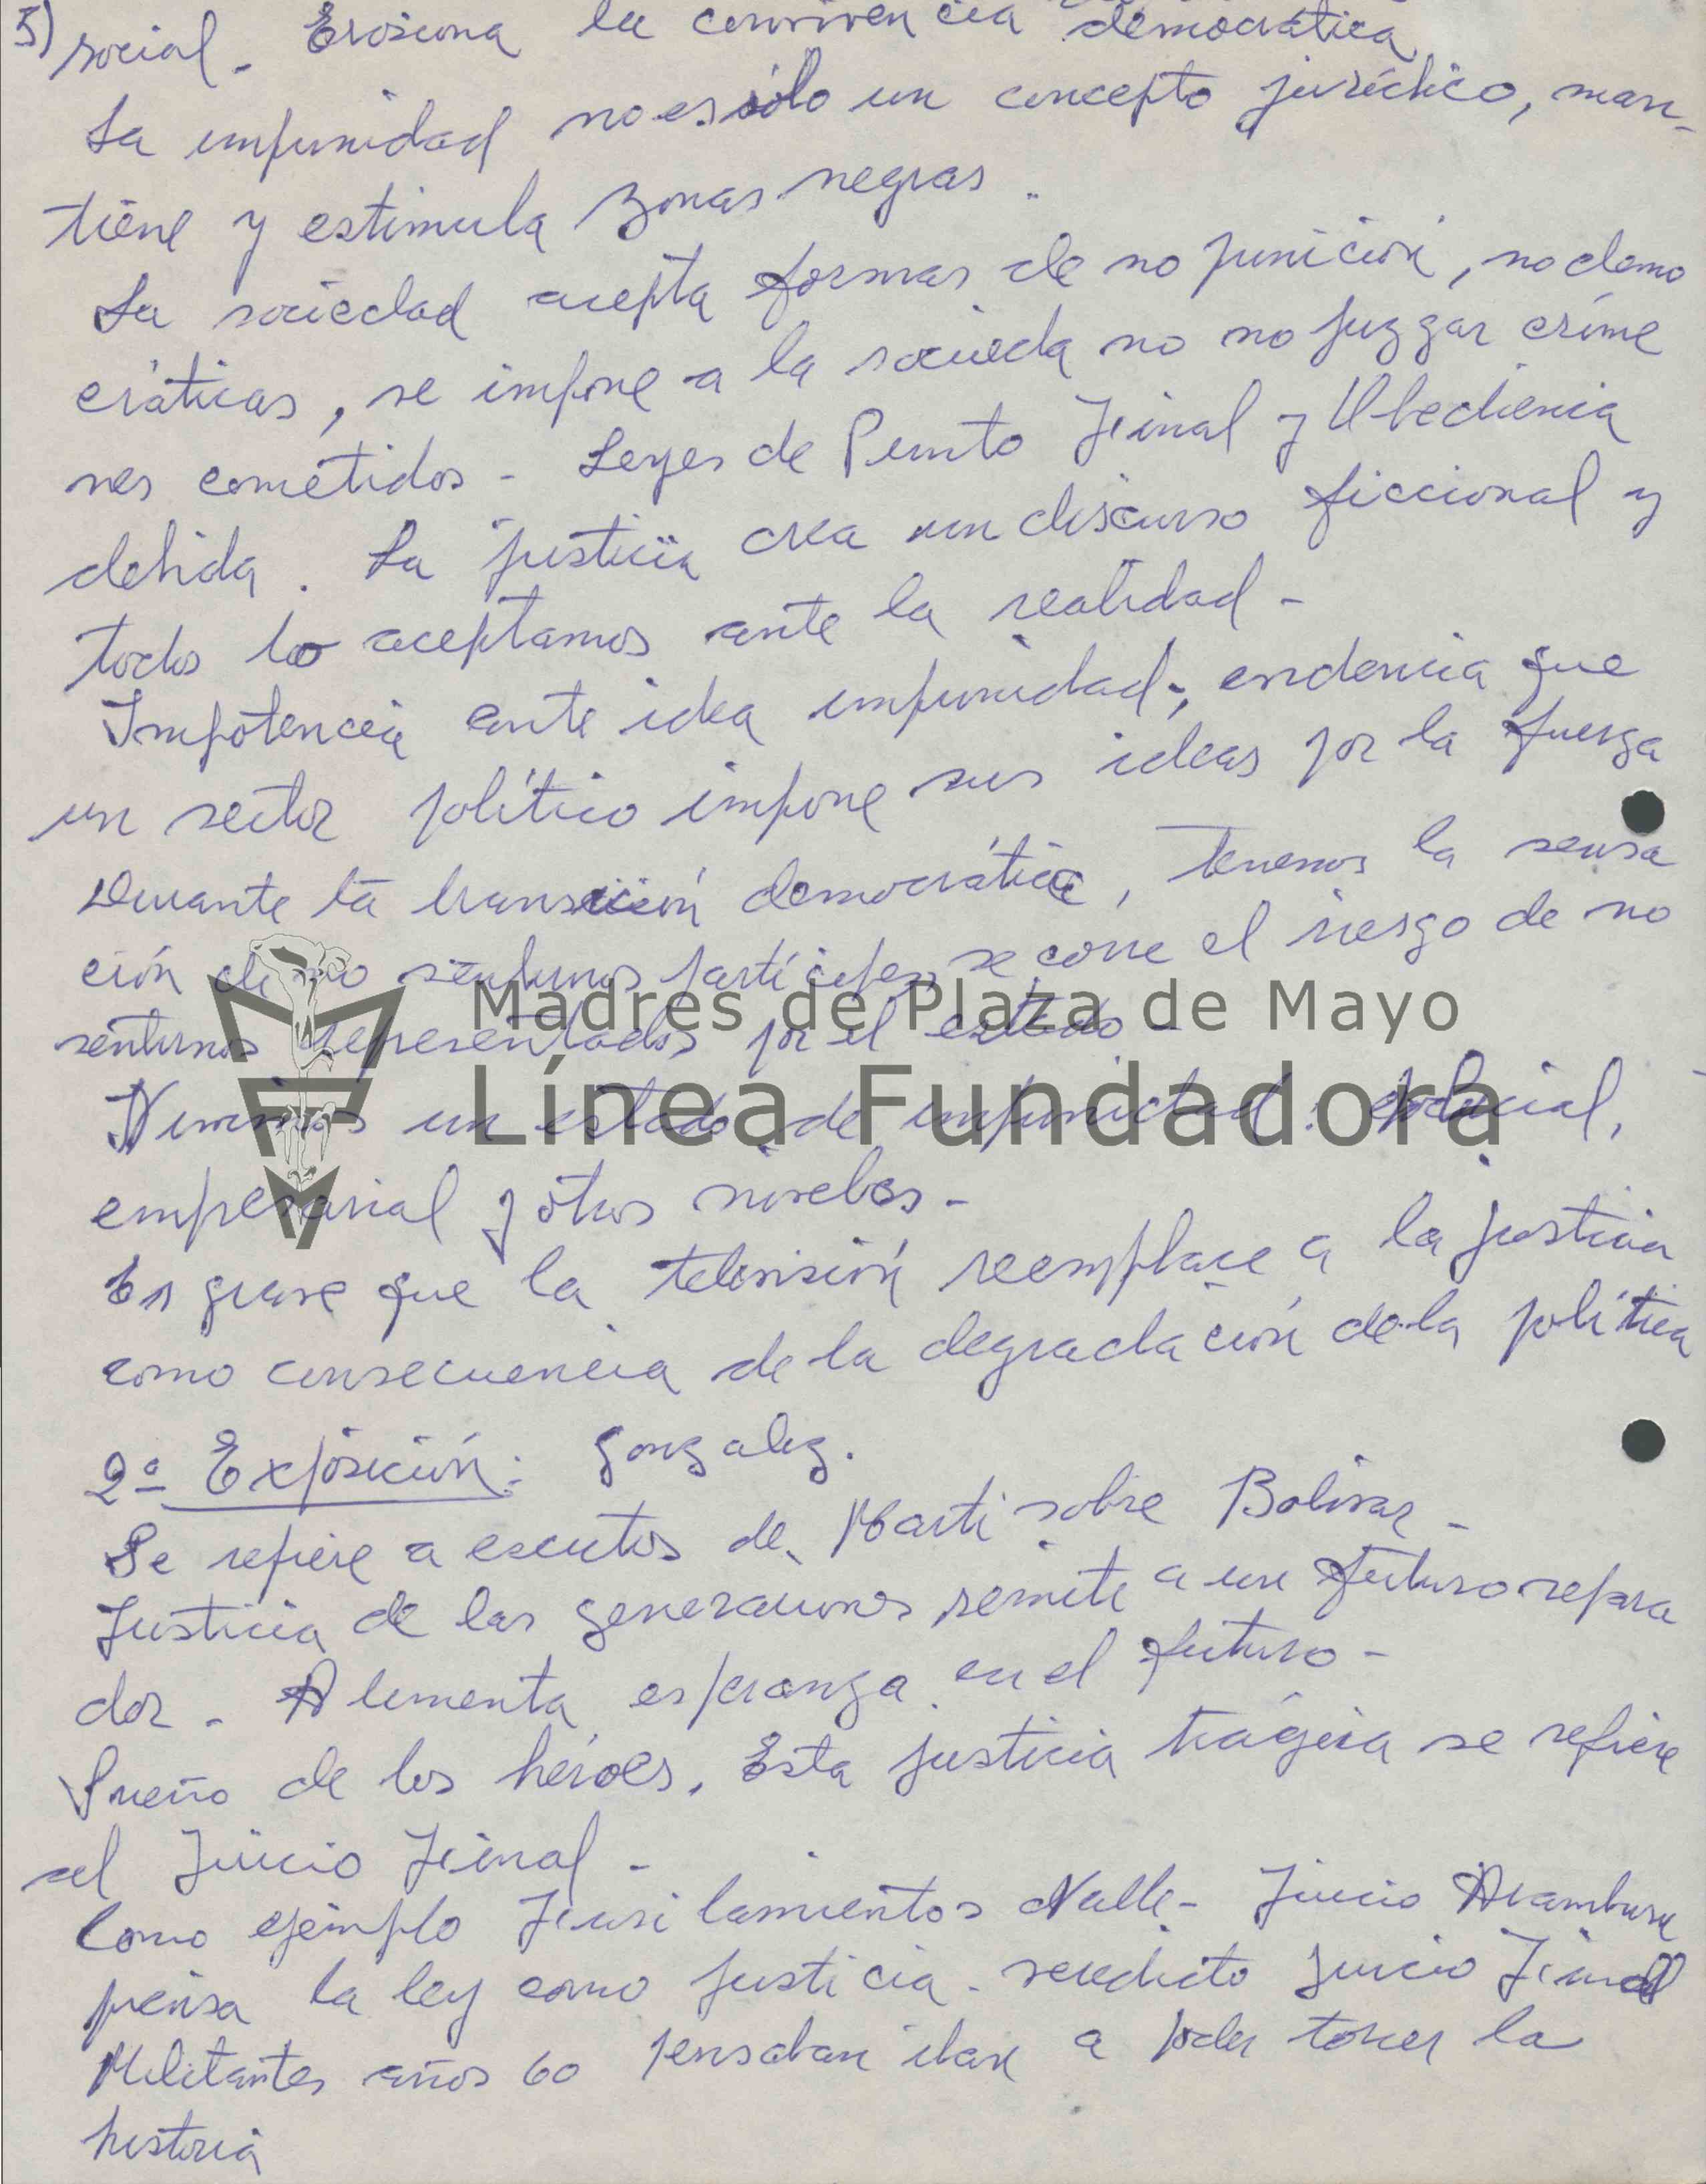 5) social - Erosiona la convivencia democrática
La impunidad no es sólo un concepto jurídico, man-
tiene y estimula zonas negras.
La sociedad acepta formas de no punición, no demo
cráticas, se impone a la socieda no no juzgar críme
nes cometidos - Leyes de Punto Final y Obediencia
debida. La justicia crea un discurso ficcional y
todos lo aceptamos ante la realidad -
Impotencia ante idea impunidad, evidencia que
un sector político impone sus ideas por la fuerza
Durante la transición democrática, tenemos la sensa
ción de no sentirnos partícipes, se corre el riesgo de no
sentirnos representados por el estado -
Madres de Plaza de Mayo
Línea Fundadora
Vivimos un estado de impunidad: policial,
empresarial y otros niveles -
Es grave que la televisión reemplace a la justicia
como consecuencia de la degradación de la política
2ª Exposición: Gonzalez.
Se refiere a escritos de Martí sobre Bolivar -
Justicia de las generaciones remite a un futuro repara
dor - Alimenta esperanza en el futuro -
Sueño de los héroes. Esta justicia trágica se refiere
al Juicio Final -
Como ejemplo Fusilamientos Valle - Juicio Aramburu
piensa la ley como justicia - veredicto Juicio Final
Militantes años 60 pensaban iban a poder torcer la
historia